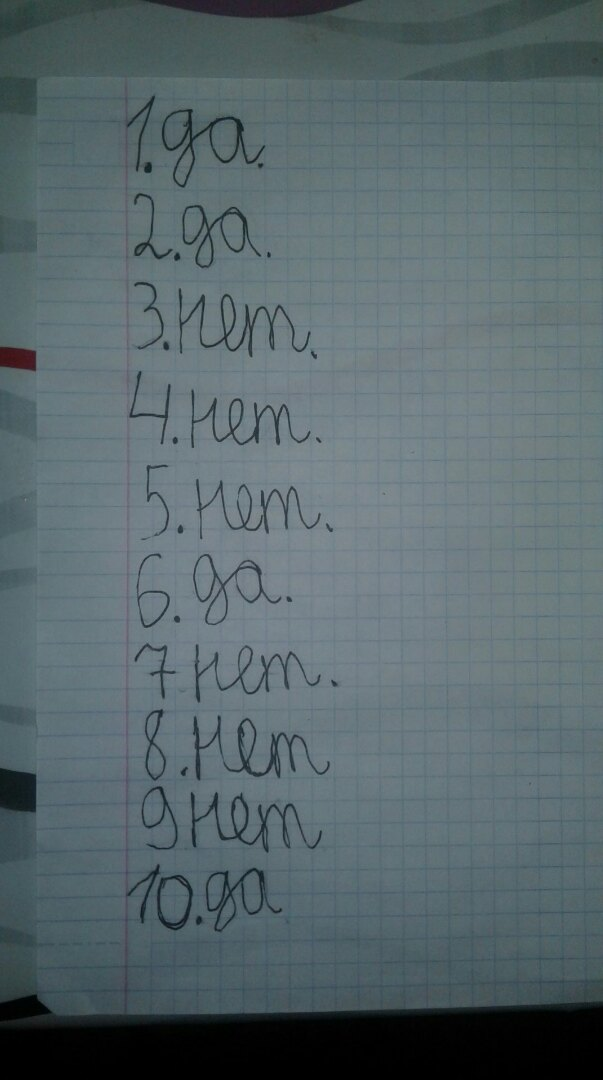 1.да.
2.да.
3.нет.
4.нет.
5.нет.
6.да.
7 нет.
8.нет
9 нет
10.да